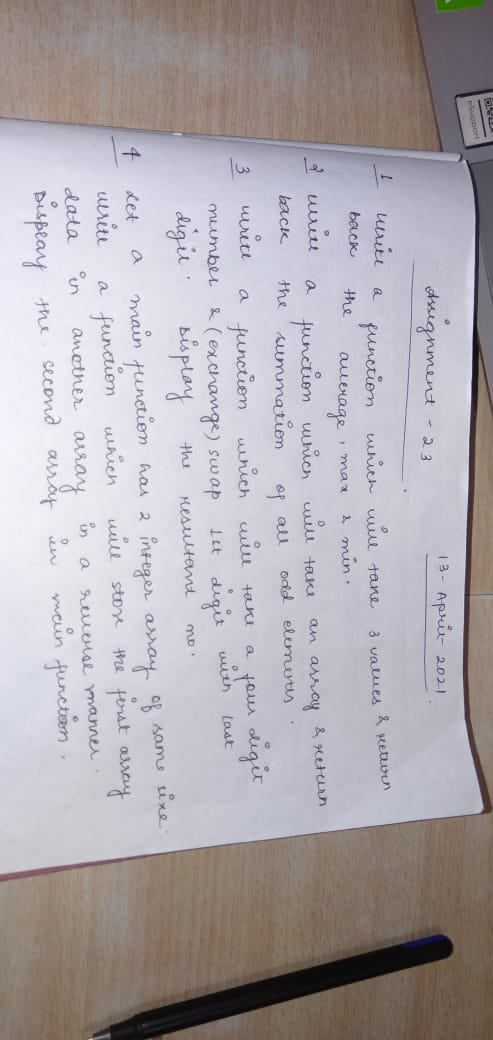 Assignment - 23
13 - April 2021.
1 write a function which will take 3 values & return
back the average, max & min.
2 write a function which will take an array & return
back the summation of all odd elements.
3 write a function which will take a four digit
number & (exchange) swap 1st digit with last
digit. Display the resultand no.
4 Let a main function has 2 integer array of same size.
write a function which will store the first array
data in another array in a reverse manner.
Display the second array in main function.
eSupport